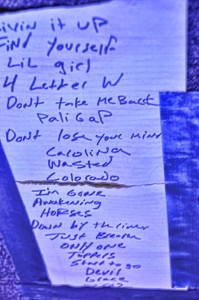 Livin it up
Find Yourself
LiL girl
4 Letter W
DONT take ME Back
PaLi GaP
DONT lose your mind
Carolina
Wasted
Colorado
I'm Gone
Awakening
HORSES
Down by the river
Just Breath
ONLY one
Torres
Devil
Grace